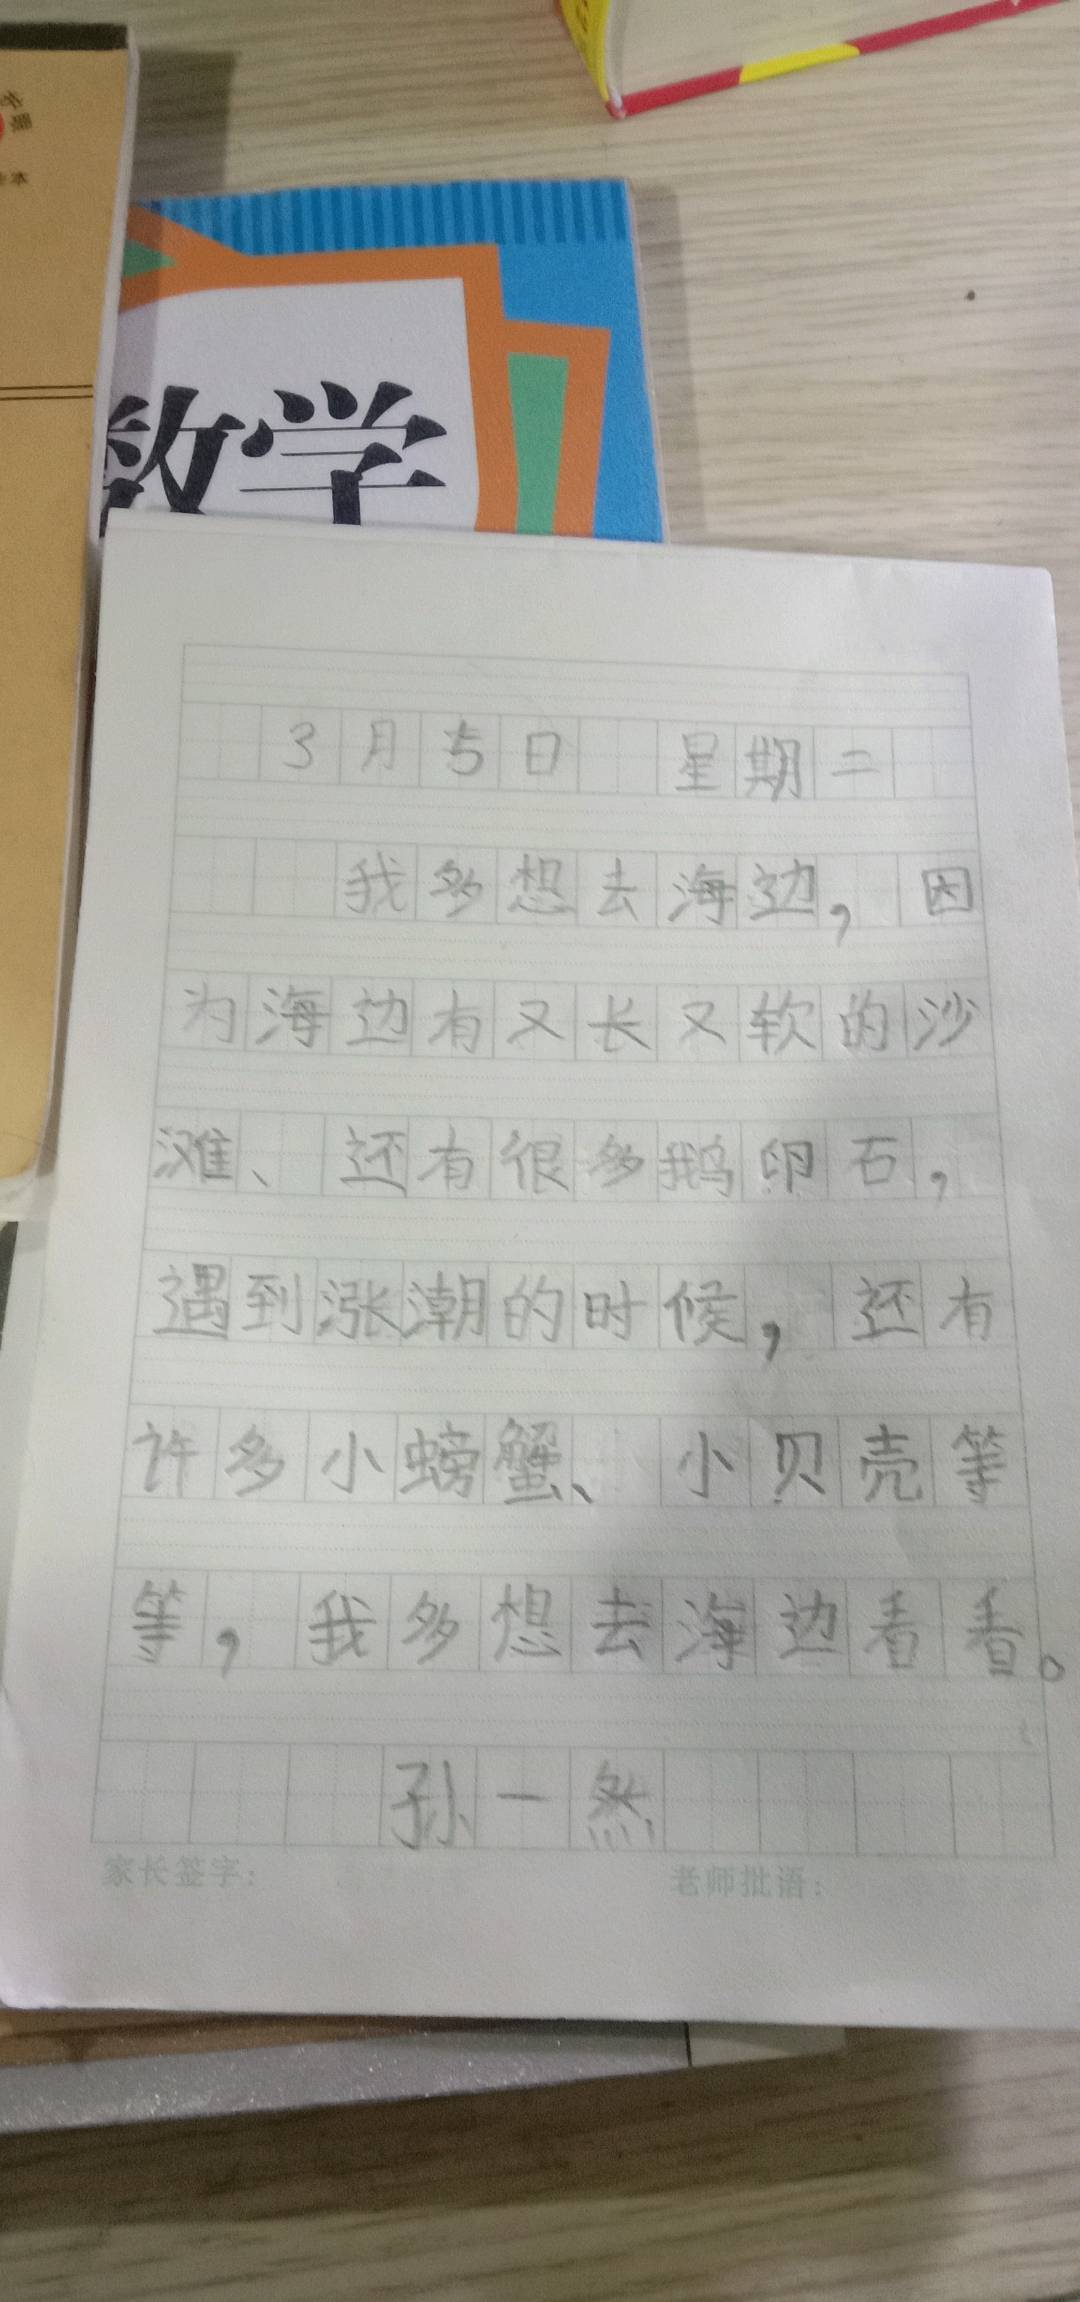 数学
3月5日 星期二
我多想去海边，因
为海边有又长又软的沙
滩、还有很多鹅卵石，
遇到涨潮的时候，还有
许多小螃蟹、小贝壳等
等，我多想去海边看看。
孙一然
家长签字： 老师批语：